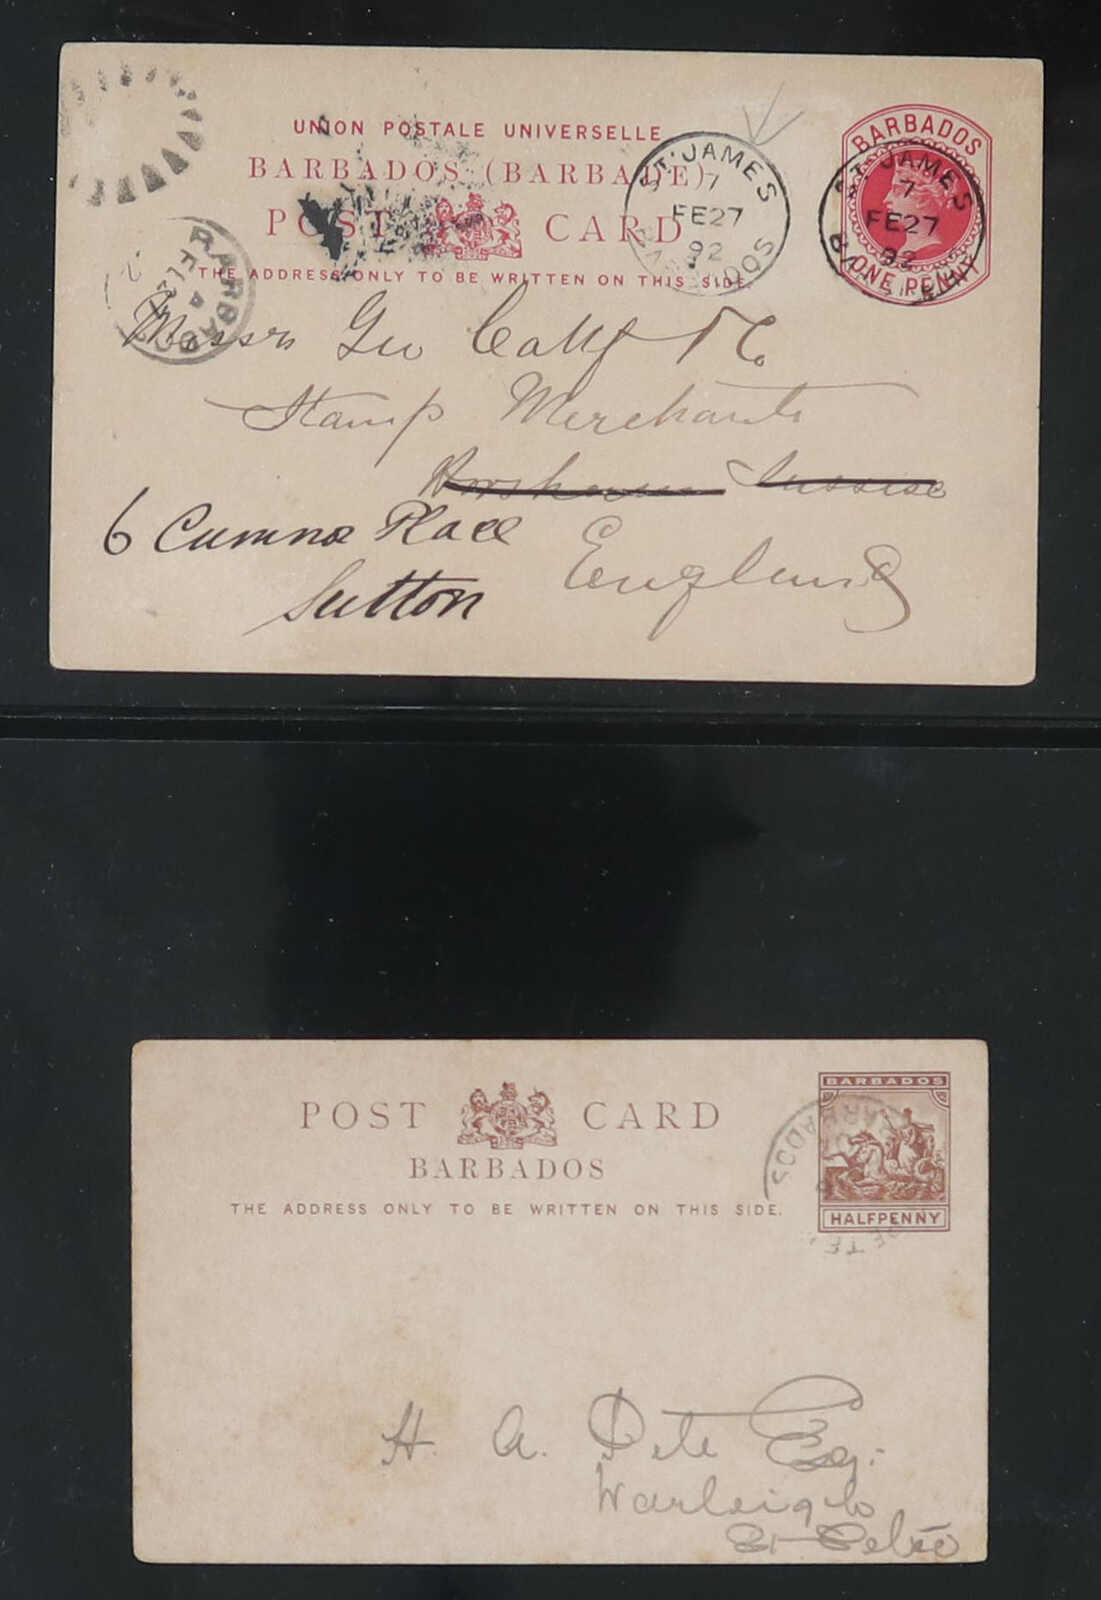 UNION POSTALE UNIVERSELLE
BARBADOS (BARBADE)
POST CARD
THE ADDRESS ONLY TO BE WRITTEN ON THIS SIDE.
BARBADOS
ONE PENNY
ST. JAMES
7
FE 27
92
BARBADOS
ST. JAMES
7
FE 27
92
BARBADOS
Messrs Geo Calif & Co.
Stamp Merchants
Horsham Sussex
6 Cumnor Place
England
Sutton
POST CARD
BARBADOS
THE ADDRESS ONLY TO BE WRITTEN ON THIS SIDE.
BARBADOS
HALFPENNY
BARBADOS
H. A. Pete Esq:
Warleigh
St Peter